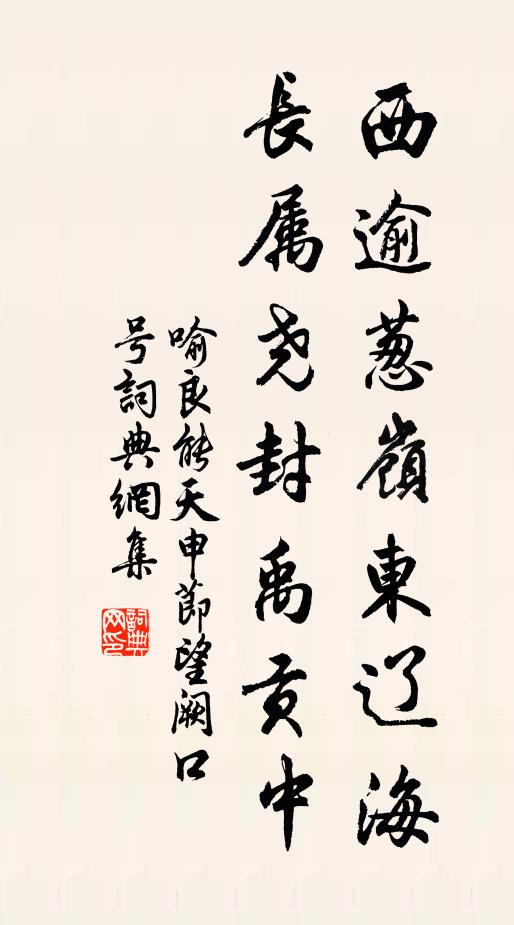 西逾葱嶺東辽海
長属尧封禹贡中
喻良能天申節望阙口
号詞典網集
詞典网印